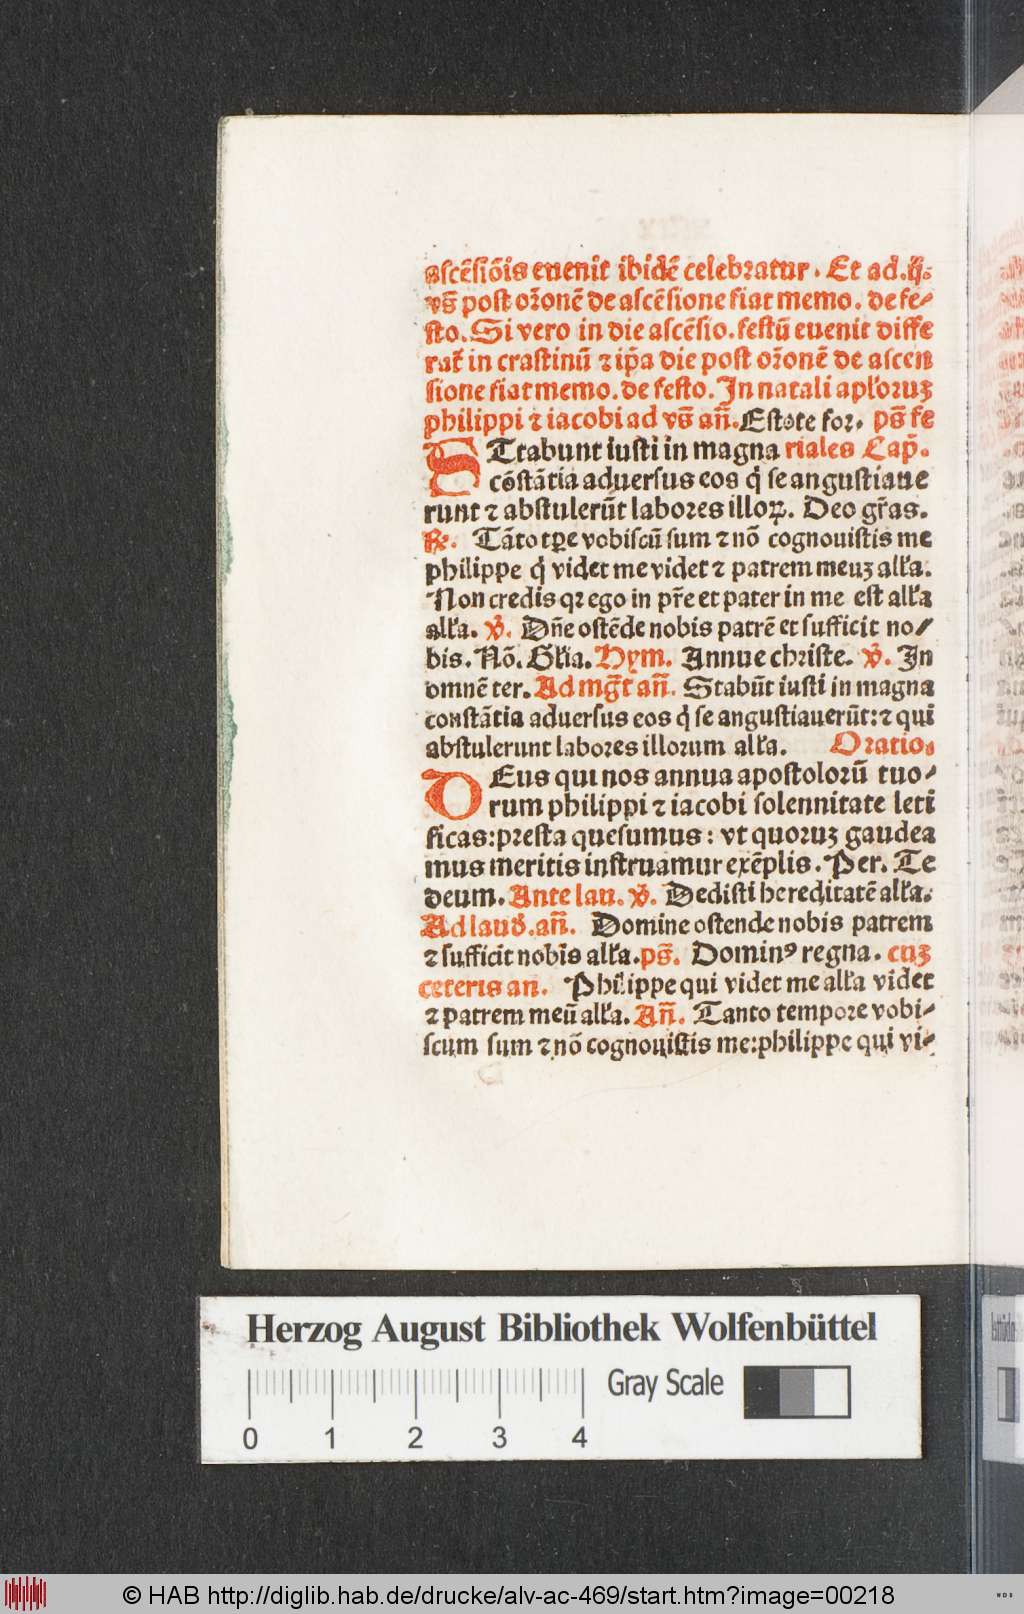 ascēsiōis euenit ibidē celebratur. Et ad.ij.
vs̄ post or̄onē de ascēsione fiat memo. de fe⸗
sto. Si vero in die ascēsio. festū euenit diffe
rat̄ in crastinū ⁊ ip̄a die post or̄onē de ascen
sione fiat memo. de festo. In natali apl'oruꝫ
philippi ⁊ iacobi ad vs̄ an̄. Estote for. ps̄ fe
STtabunt iusti in magna riales Cap̄.
cōstātia aduersus eos q̇ se angustiaue
runt ⁊ abstulerūt labores illoꝝ. Deo gr̄as.
℟. Tāto tꝑe vobiscū sum ⁊ nō cognouistis me
philippe q̇ videt me videt ⁊ patrem meuꝫ all'a.
Non credis qꝛ ego in pr̄e et pater in me est all'a
all'a. ℣. Dn̄e ostēde nobis patrē et sufficit no⸗
bis. Nō. Gl'ia. Hym. Annue christe. ℣. In
omnē ter. Ad mḡt an̄. Stabūt iusti in magna
constātia aduersus eos q̇ se angustiauerūt: ⁊ qui
abstulerunt labores illorum all'a. Oratio.
DEus qui nos annua apostolorū tuo⸗
rum philippi ⁊ iacobi solennitate leti
ficas: presta quesumus: vt quoruꝫ gaudea
mus meritis instruamur exēplis. Per. Te
deum. Ante lau. ℣. Dedisti hereditatē all'a.
Ad laud'. an̄. Domine ostende nobis patrem
⁊ sufficit nobis all'a. ps̄. Dominꝰ regna. cuꝫ
ceteris an. Philippe qui videt me all'a videt
⁊ patrem meū all'a. An̄. Tanto tempore vobi⸗
scum sum ⁊ nō cognouistis me: philippe qui vi⸗
Herzog August Bibliothek Wolfenbüttel
Gray Scale
0 1 2 3 4
© HAB http://diglib.hab.de/drucke/alv-ac-469/start.htm?image=00218